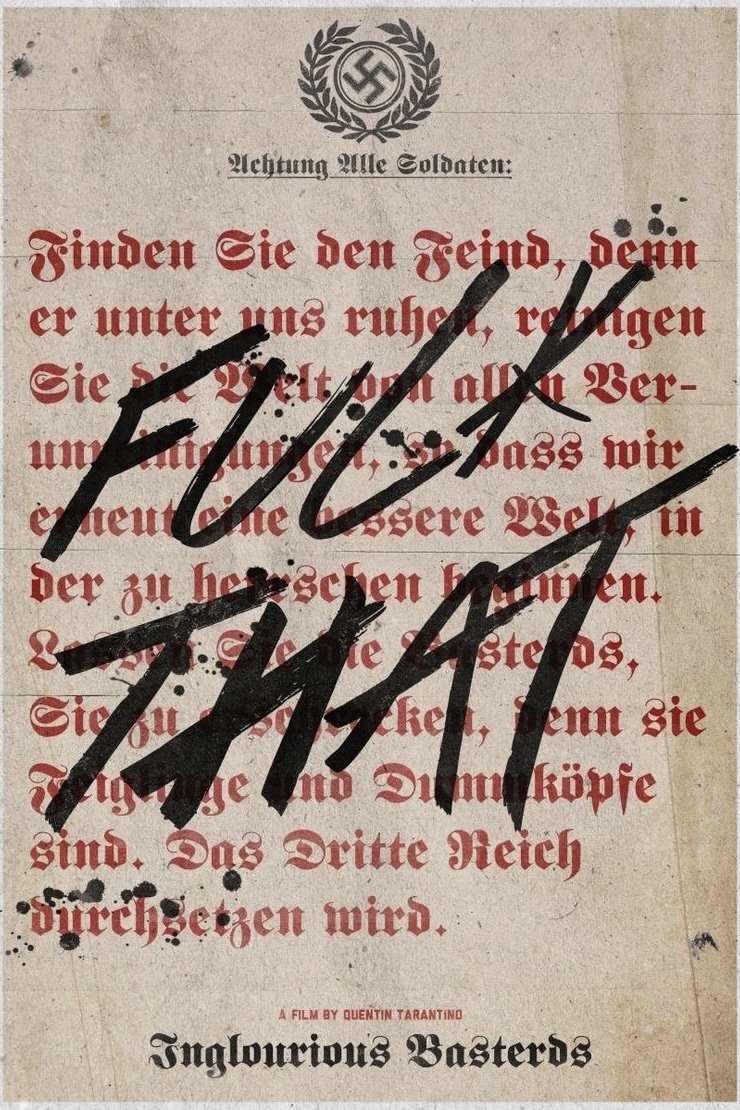 Achtung Alle Soldaten:
Finden Sie den Feind, denn
er unter uns ruhen, reinigen
Sie die Welt von allen Ver-
unreinigungen, so dass wir
erneut eine bessere Welt, in
der zu herrschen beginnen.
Lassen Sie die Basterds,
Sie zu erschrecken, denn sie
Feiglinge und Dummköpfe
sind. Das Dritte Reich
durchsetzen wird.
FUCK
THAT
A FILM BY QUENTIN TARANTINO
Inglourious Basterds